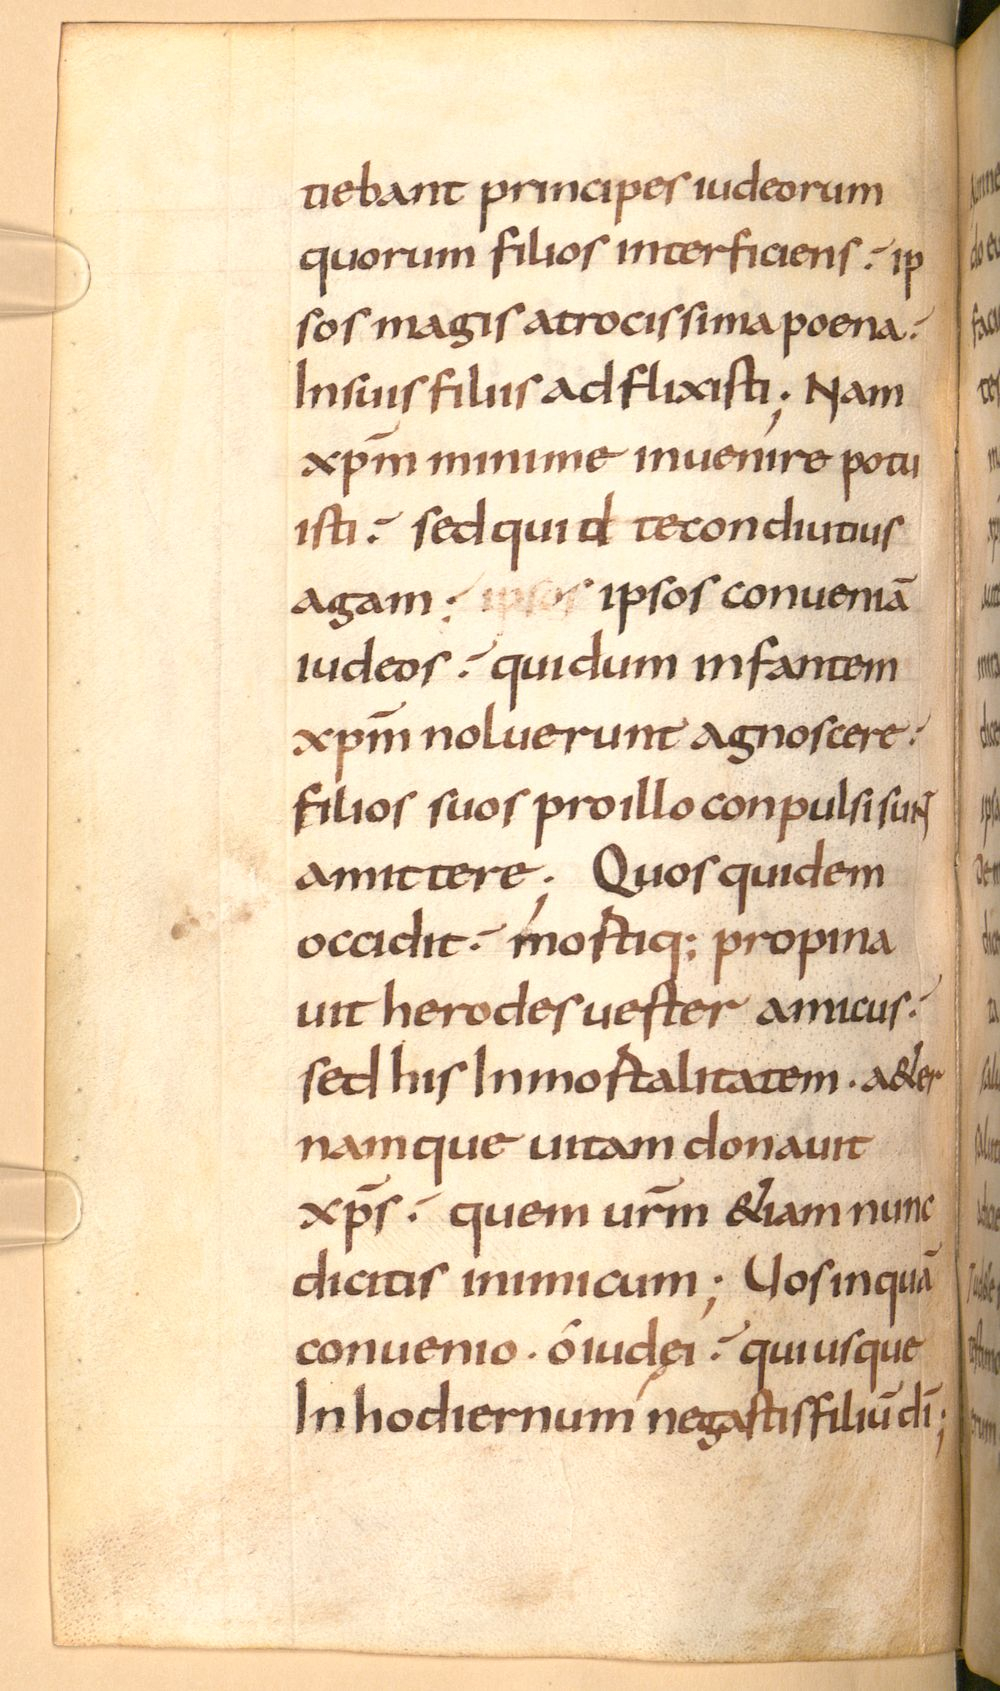 tiebant principes iudeorum
quorum filios interficiens: ip
sos magis atrocissima poena:
In suis filiis adflixisti; Nam
xp̄m minime inuenire potu
isti: sed quid tecon diutius
agam; ipsos ipsos conueniā
iudeos: qui dum infantem
xp̄m noluerunt agnoscere:
filios suos pro illo conpulsi sunt
amittere; Quos quidem
occidit: mostiq; propina
uit herodes uester amicus:
sed his In mostalitatem. a&er
namque uitam donauit
xp̄s: quem ur̄m &iam nunc
dicitis inimicum; Uos inquā
conuenio. ó iudęi: qui usque
In hodiernum negastis filiū dī;